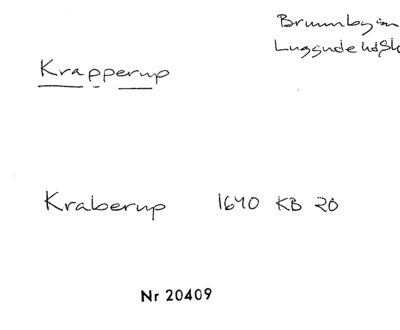 Brunnby sn
Luggude hd Sk
Krapperup
Kraberup 1640 KB 20
Nr 20409